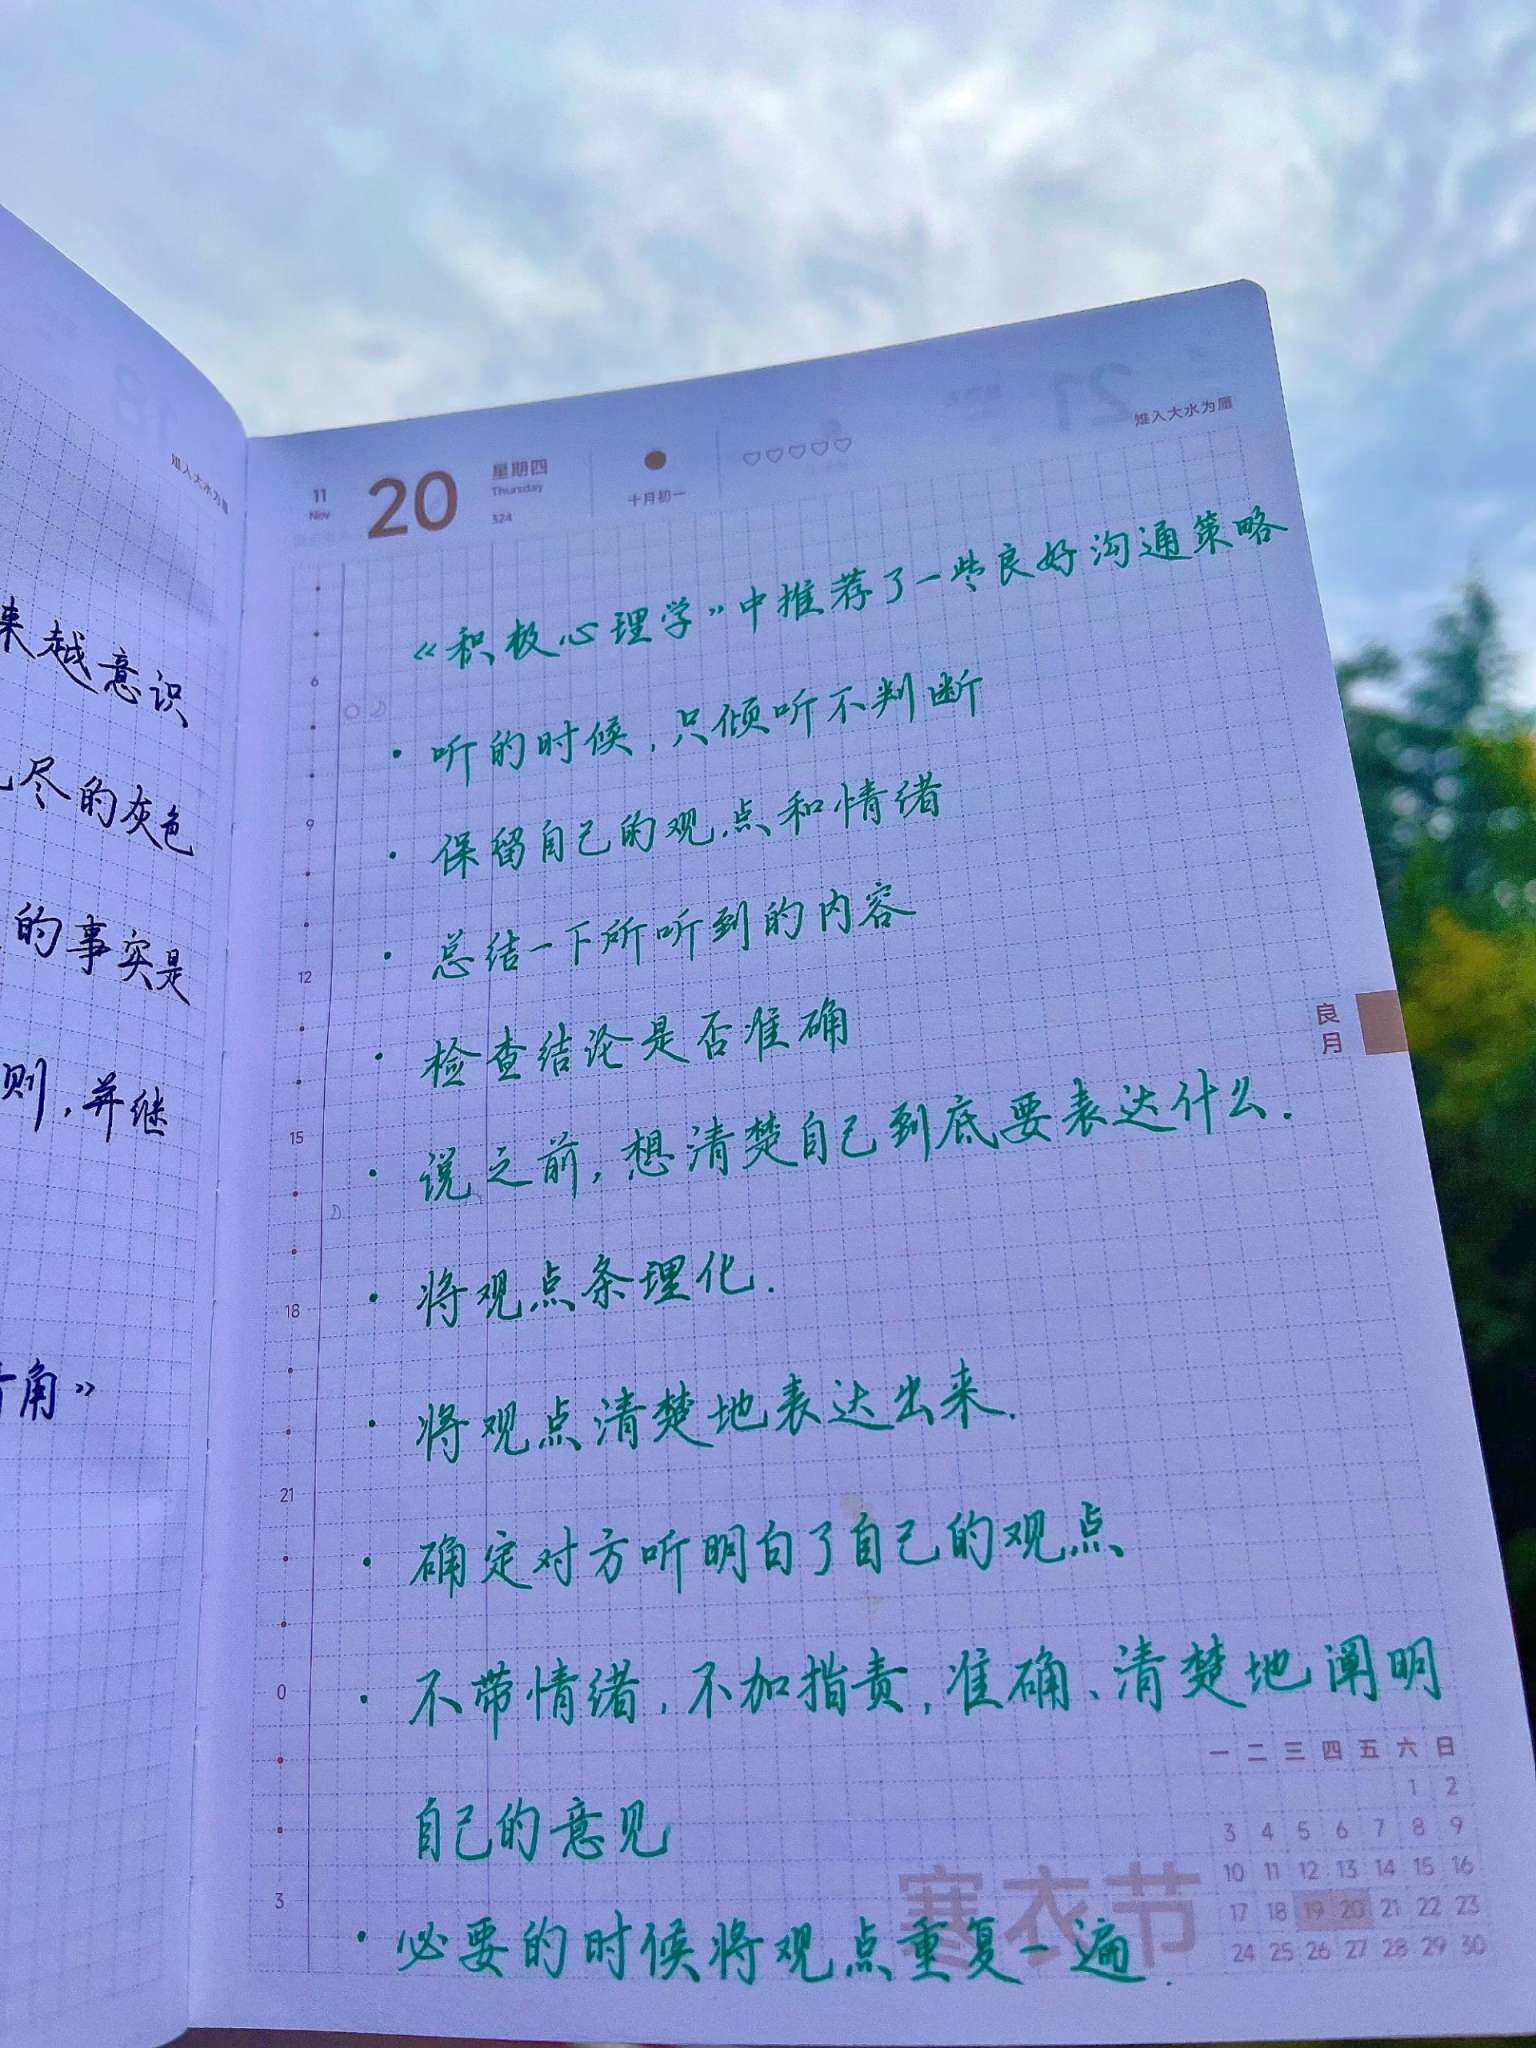 雉入大水为蜃
来越意识
尽的灰色
的事实是
则,并继
角》
11
Nov
20
星期四
Thursday
324
十月初一
雉入大水为蜃
《积极心理学》中推荐了一些良好沟通策略
· 听的时候,只倾听不判断
· 保留自己的观点和情绪
· 总结一下所听到的内容
· 检查结论是否准确
· 说之前,想清楚自己到底要表达什么.
· 将观点条理化.
· 将观点清楚地表达出来.
· 确定对方听明白了自己的观点
· 不带情绪,不加指责,准确、清楚地阐明
自己的意见
· 必要的时候将观点重复一遍.
6
9
12
15
18
21
0
3
良月
寒衣节
一 二 三 四 五 六 日
1 2
3 4 5 6 7 8 9
10 11 12 13 14 15 16
17 18 19 20 21 22 23
24 25 26 27 28 29 30